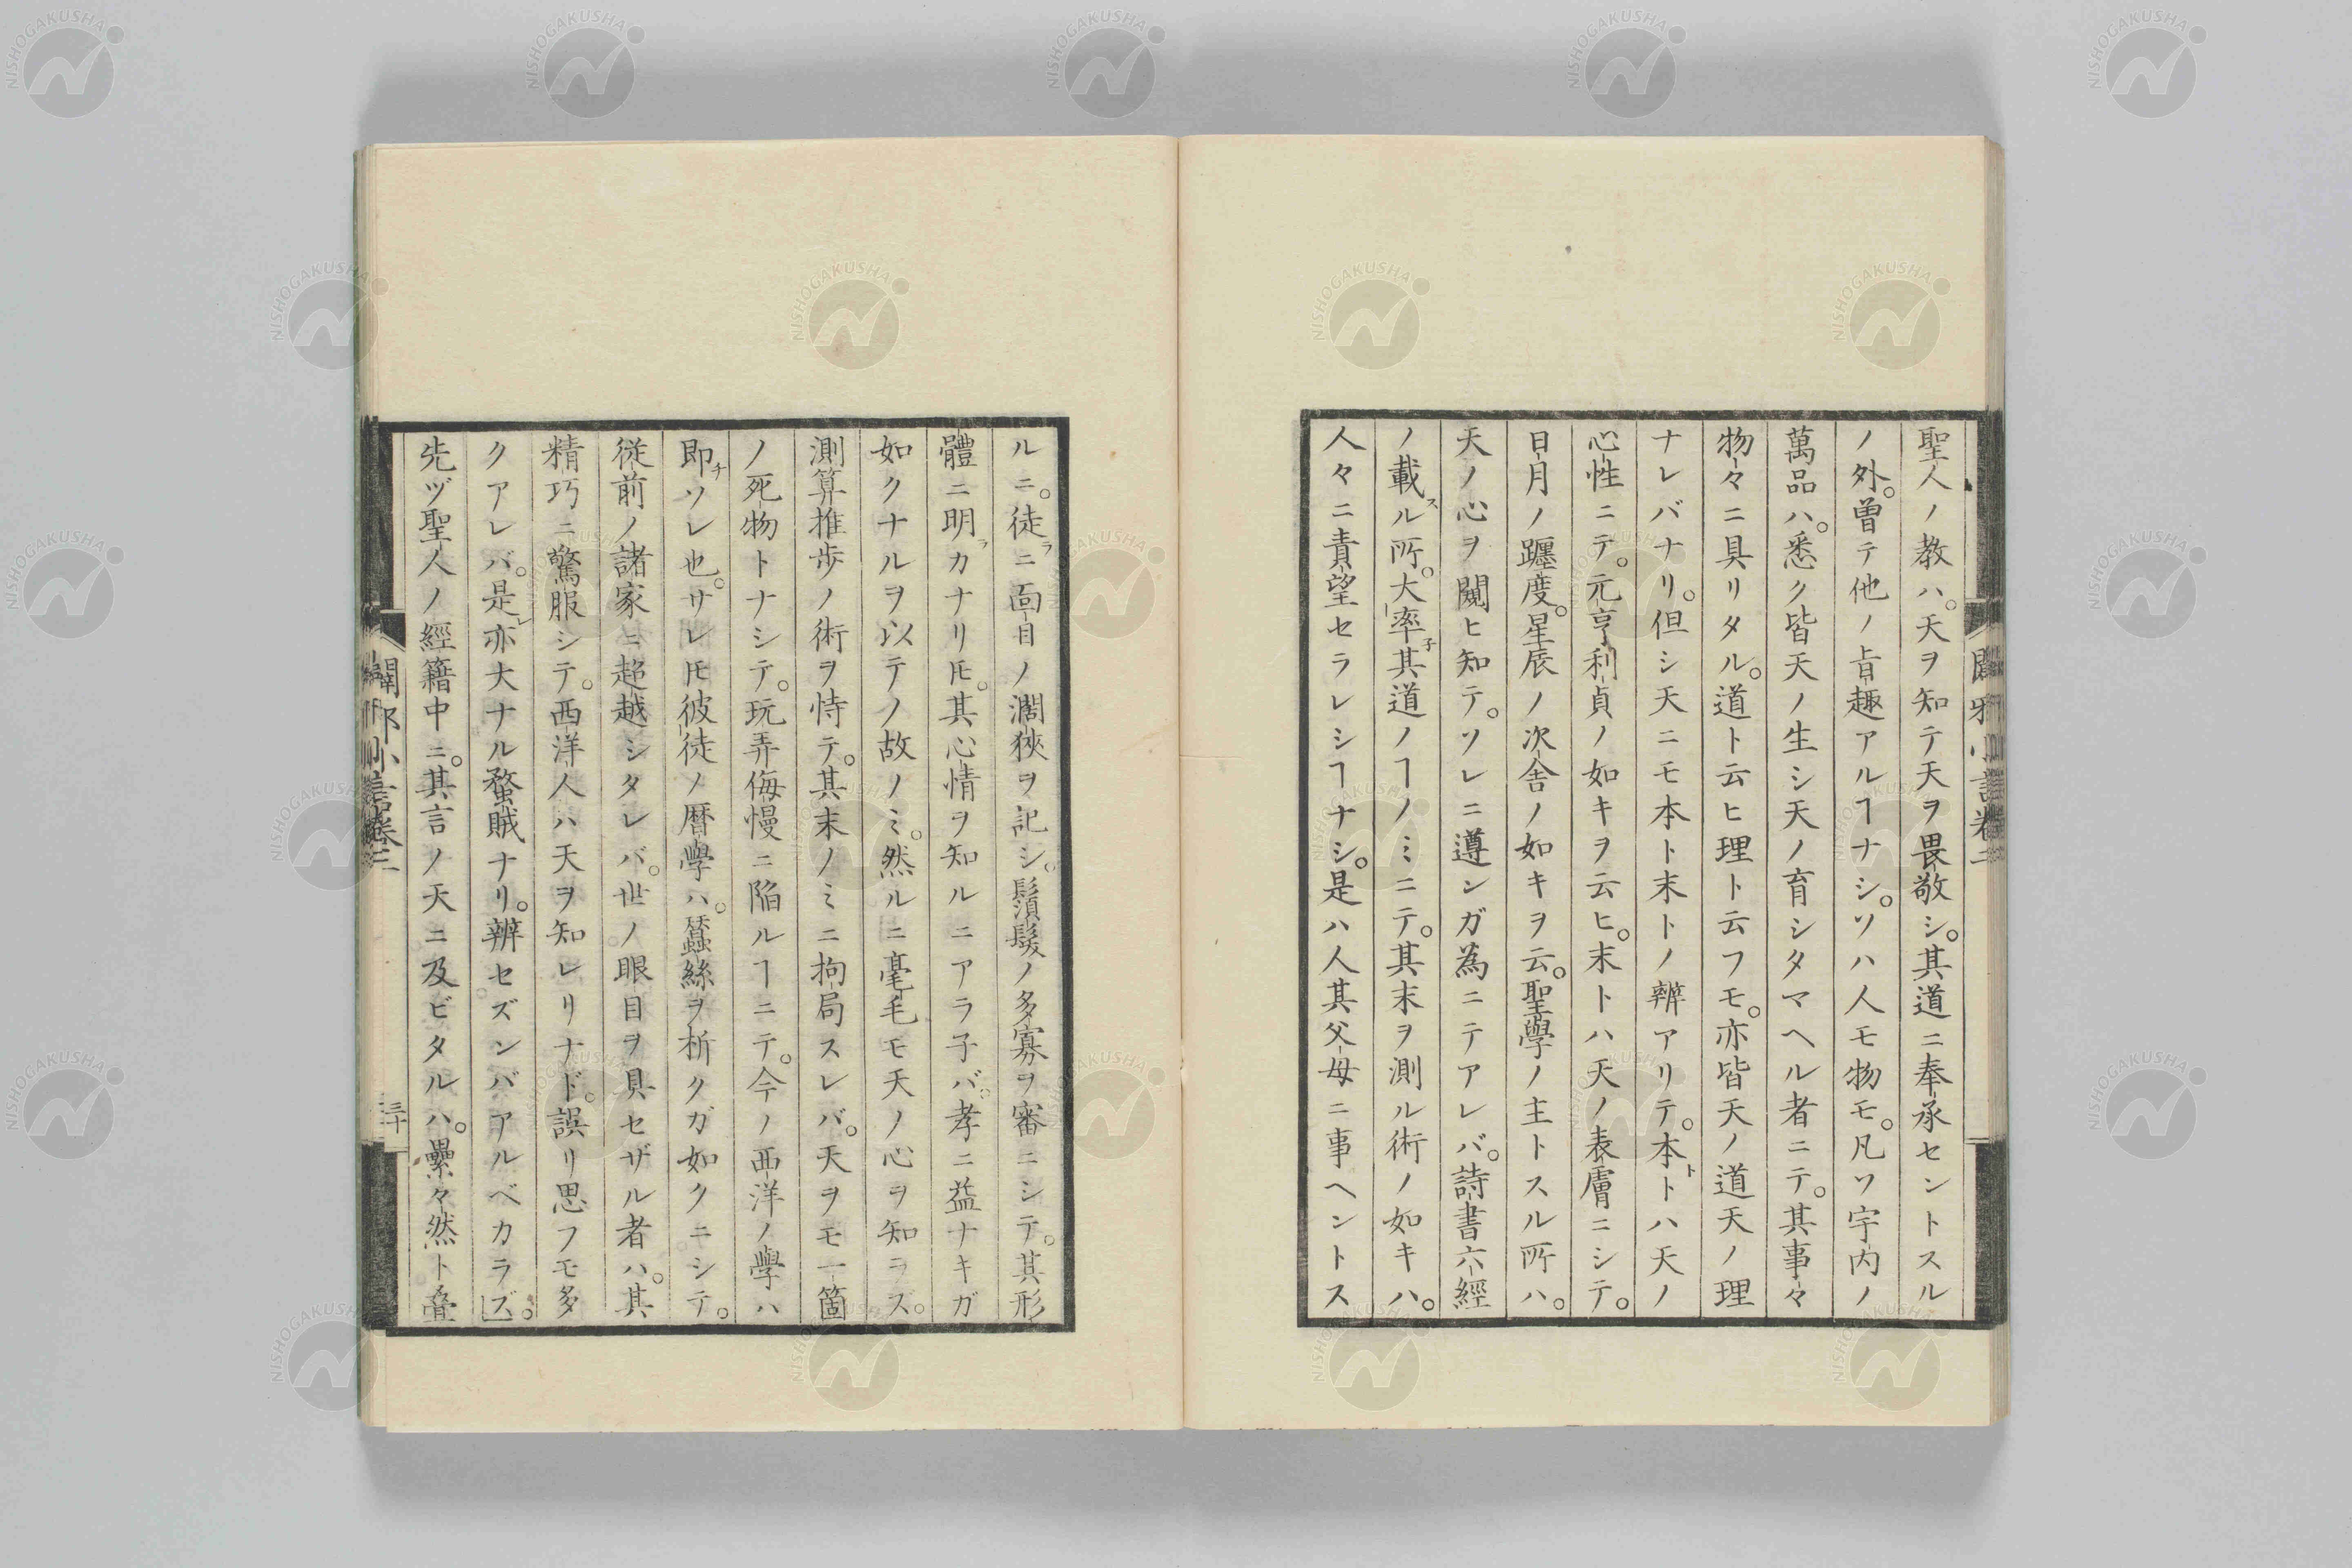 聖人ノ教ハ。天ヲ知テ天ヲ畏敬シ。其道ニ奉承セントスル
ノ外。曽テ他ノ旨趣アルヿナシ。ソハ人モ物モ。凡ソ宇内ノ
萬品ハ。悉ク皆天ノ生シ天ノ育シタマヘル者ニテ。其事々
物々ニ具リタル。道ト云ヒ理ト云フモ。亦皆天ノ道天ノ理
ナレバナリ。但シ天ニモ本ト末トノ辨アリテ。本トハ天ノ
心性ニテ。元亨利貞ノ如キヲ云ヒ。末トハ天ノ表膚ニシテ。
日月ノ躔度。星辰ノ次舍ノ如キヲ云。聖學ノ主トスル所ハ。
天ノ心ヲ闚ヒ知テ。ソレニ遵ンガ為ニテアレバ。詩書六經
ノ載ル所。大率其道ノヿノミニテ。其末ヲ測ル術ノ如キハ。
人々ニ責望セラレシヿナシ。是ハ人其父母ニ事ヘントス
ルニ。徒ニ面目ノ濶狹ヲ記シ。鬚髮ノ多寡ヲ審ニシテ。其形
體ニ明カナリ𪜈。其心情ヲ知ルニアラ子バ。孝ニ益ナキガ
如クナルヲ以テノ故ノミ。然ルニ毫毛モ天ノ心ヲ知ラズ。
測算推歩ノ術ヲ恃テ。其末ノミニ拘局スレバ。天ヲモ一箇
ノ死物トナシテ。玩弄侮慢ニ陷ルヿニテ。今ノ西洋ノ學ハ
即ソレ也。サレ𪜈彼徒ノ曆學ハ。蠶絲ヲ析クガ如クニシテ。
従前ノ諸家ニ超越シタレバ。世ノ眼目ヲ具セザル者ハ。其
精巧ニ驚服シテ。西洋人ハ天ヲ知レリナド。誤リ思フモ多
クアレバ。是亦大ナル蝥賊ナリ。辨セズンバアルベカラズ。
先ヅ聖人ノ經籍中ニ。其言ノ天ニ及ビタルハ。纍々然ト疊
闢邪小言卷二
三十